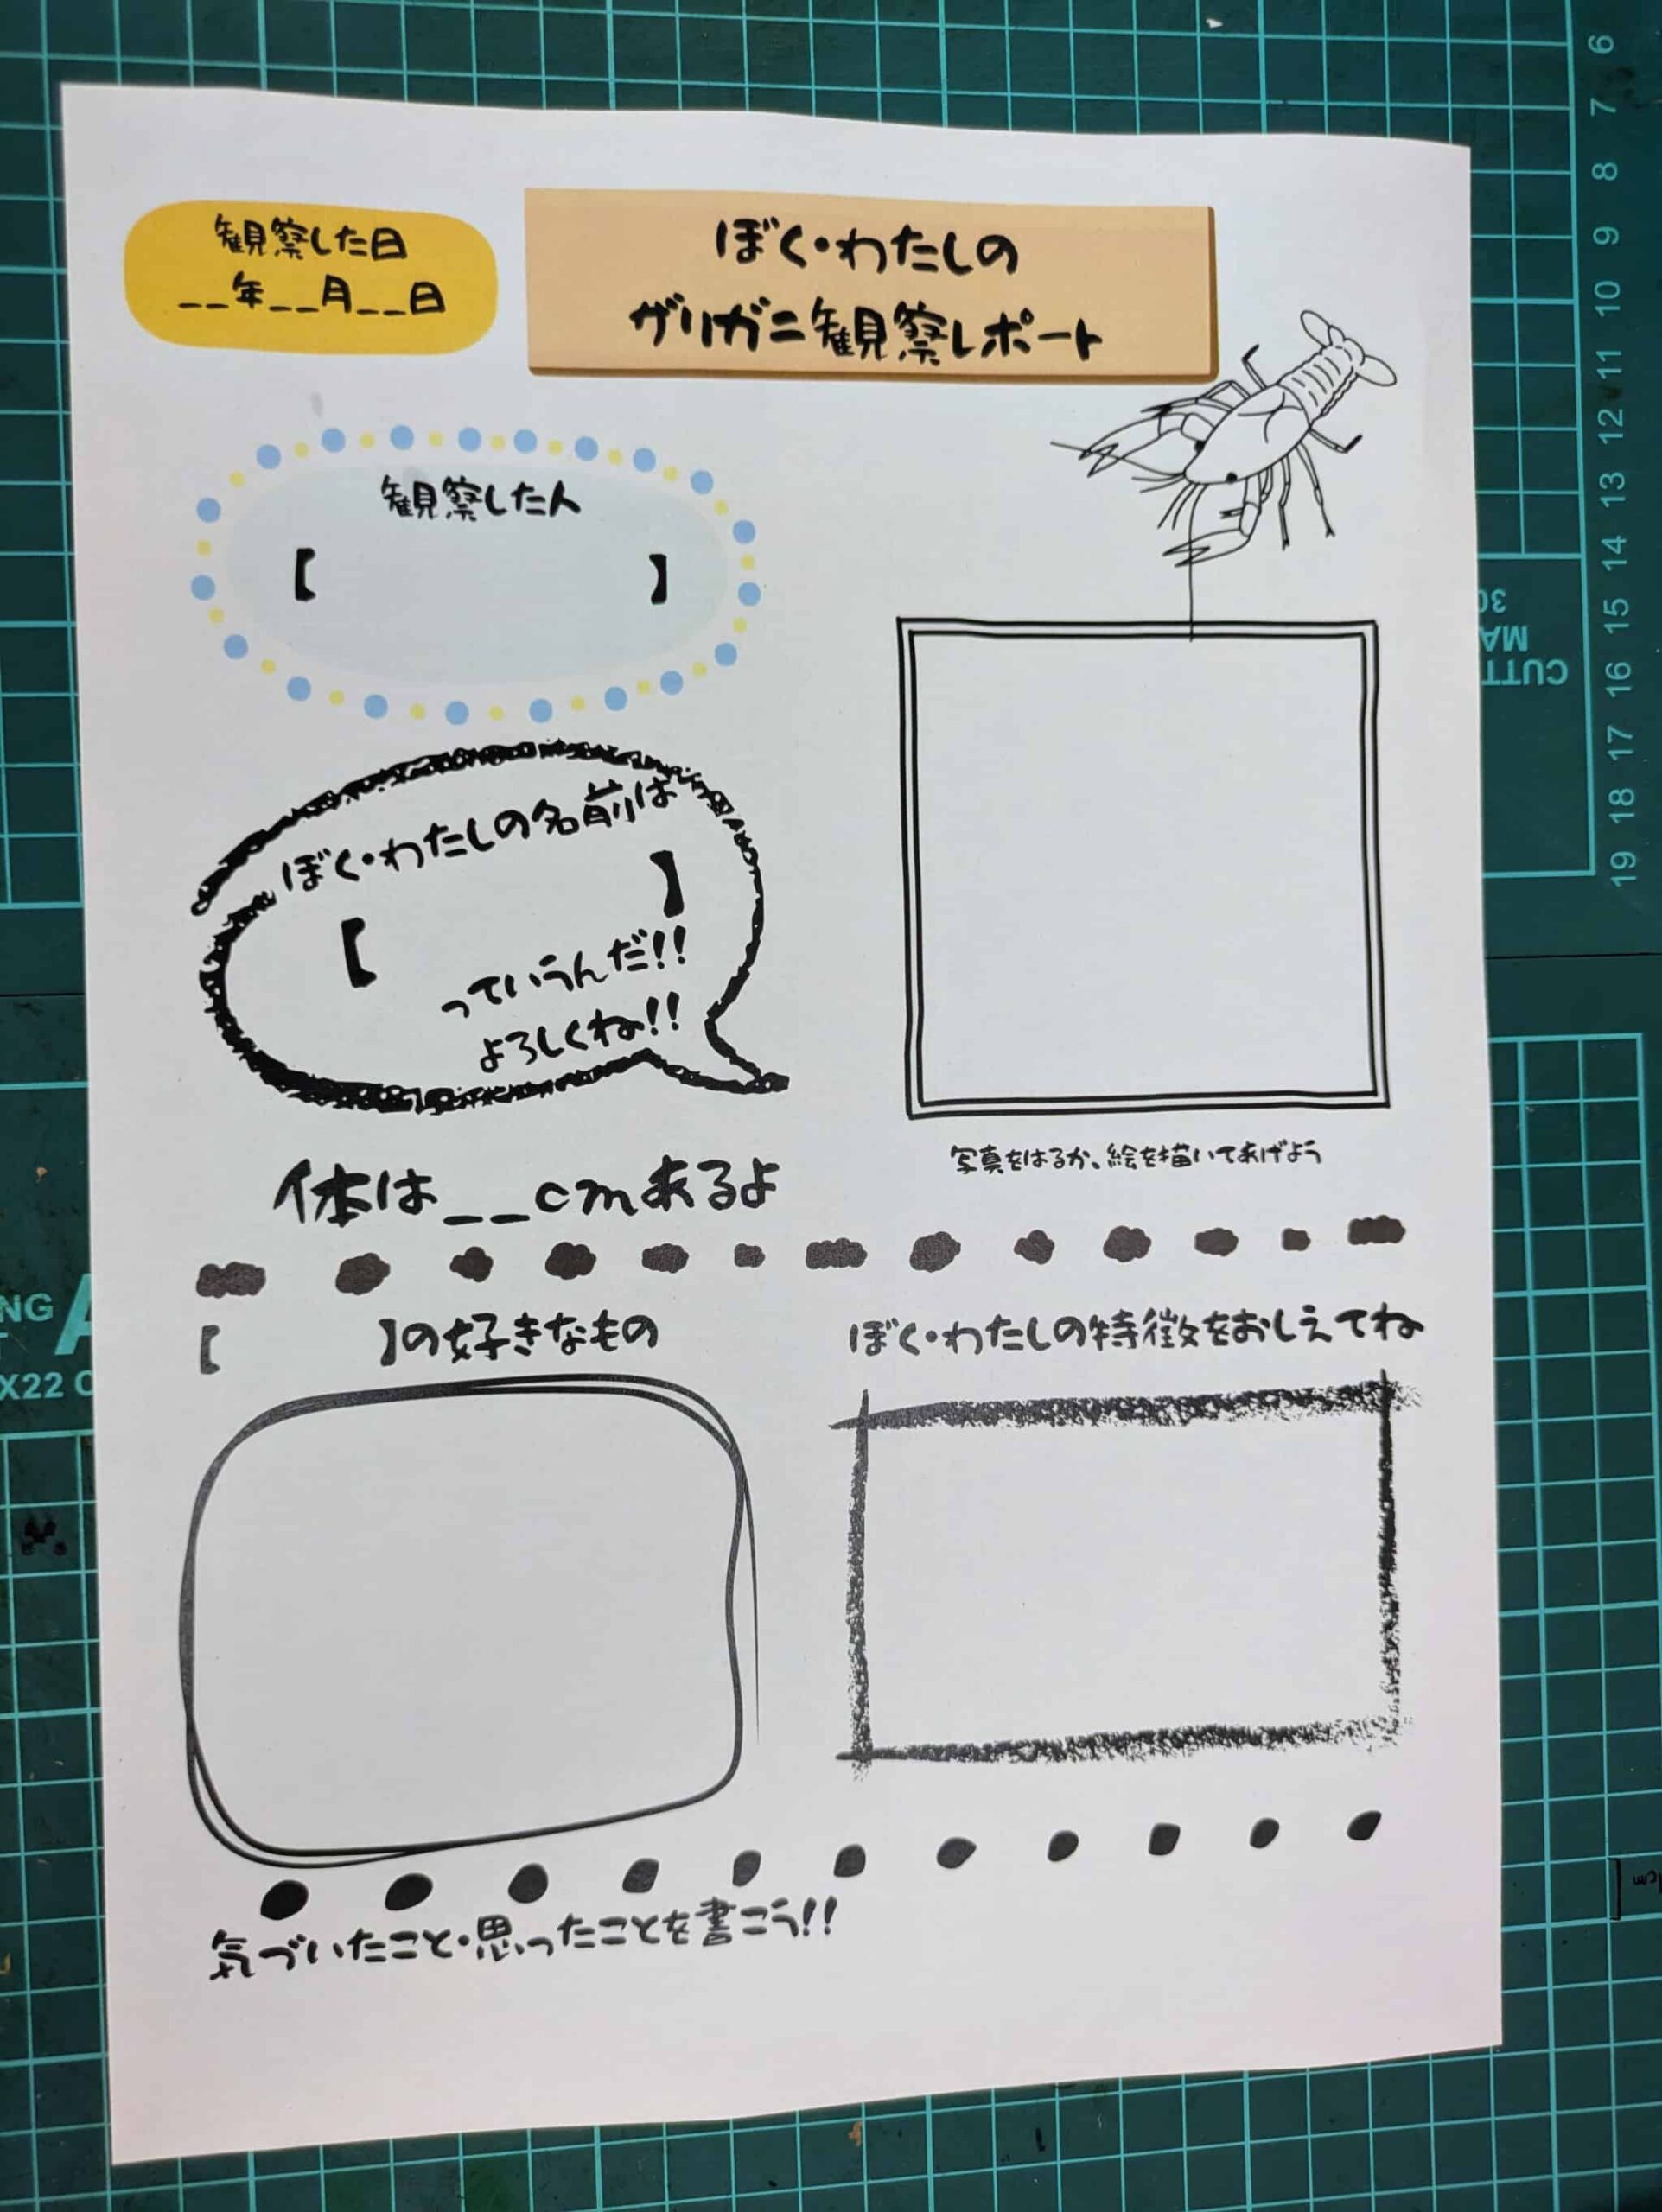 観察した日
__年__月__日
ぼく・わたしの
ザリガニ観察レポート
観察した人
【 】
ぼく・わたしの名前は
【 】
っていうんだ!!
よろしくね!!
体は__cmあるよ
写真をはるか、絵を描いてあげよう
【 】の好きなもの
ぼく・わたしの特徴をおしえてね
気づいたこと・思ったことを書こう!!
6
7
8
9
10
11
12
13
14
15
16
17
18
19
30
MA
CUTT
NG
A
X22 C
1cm